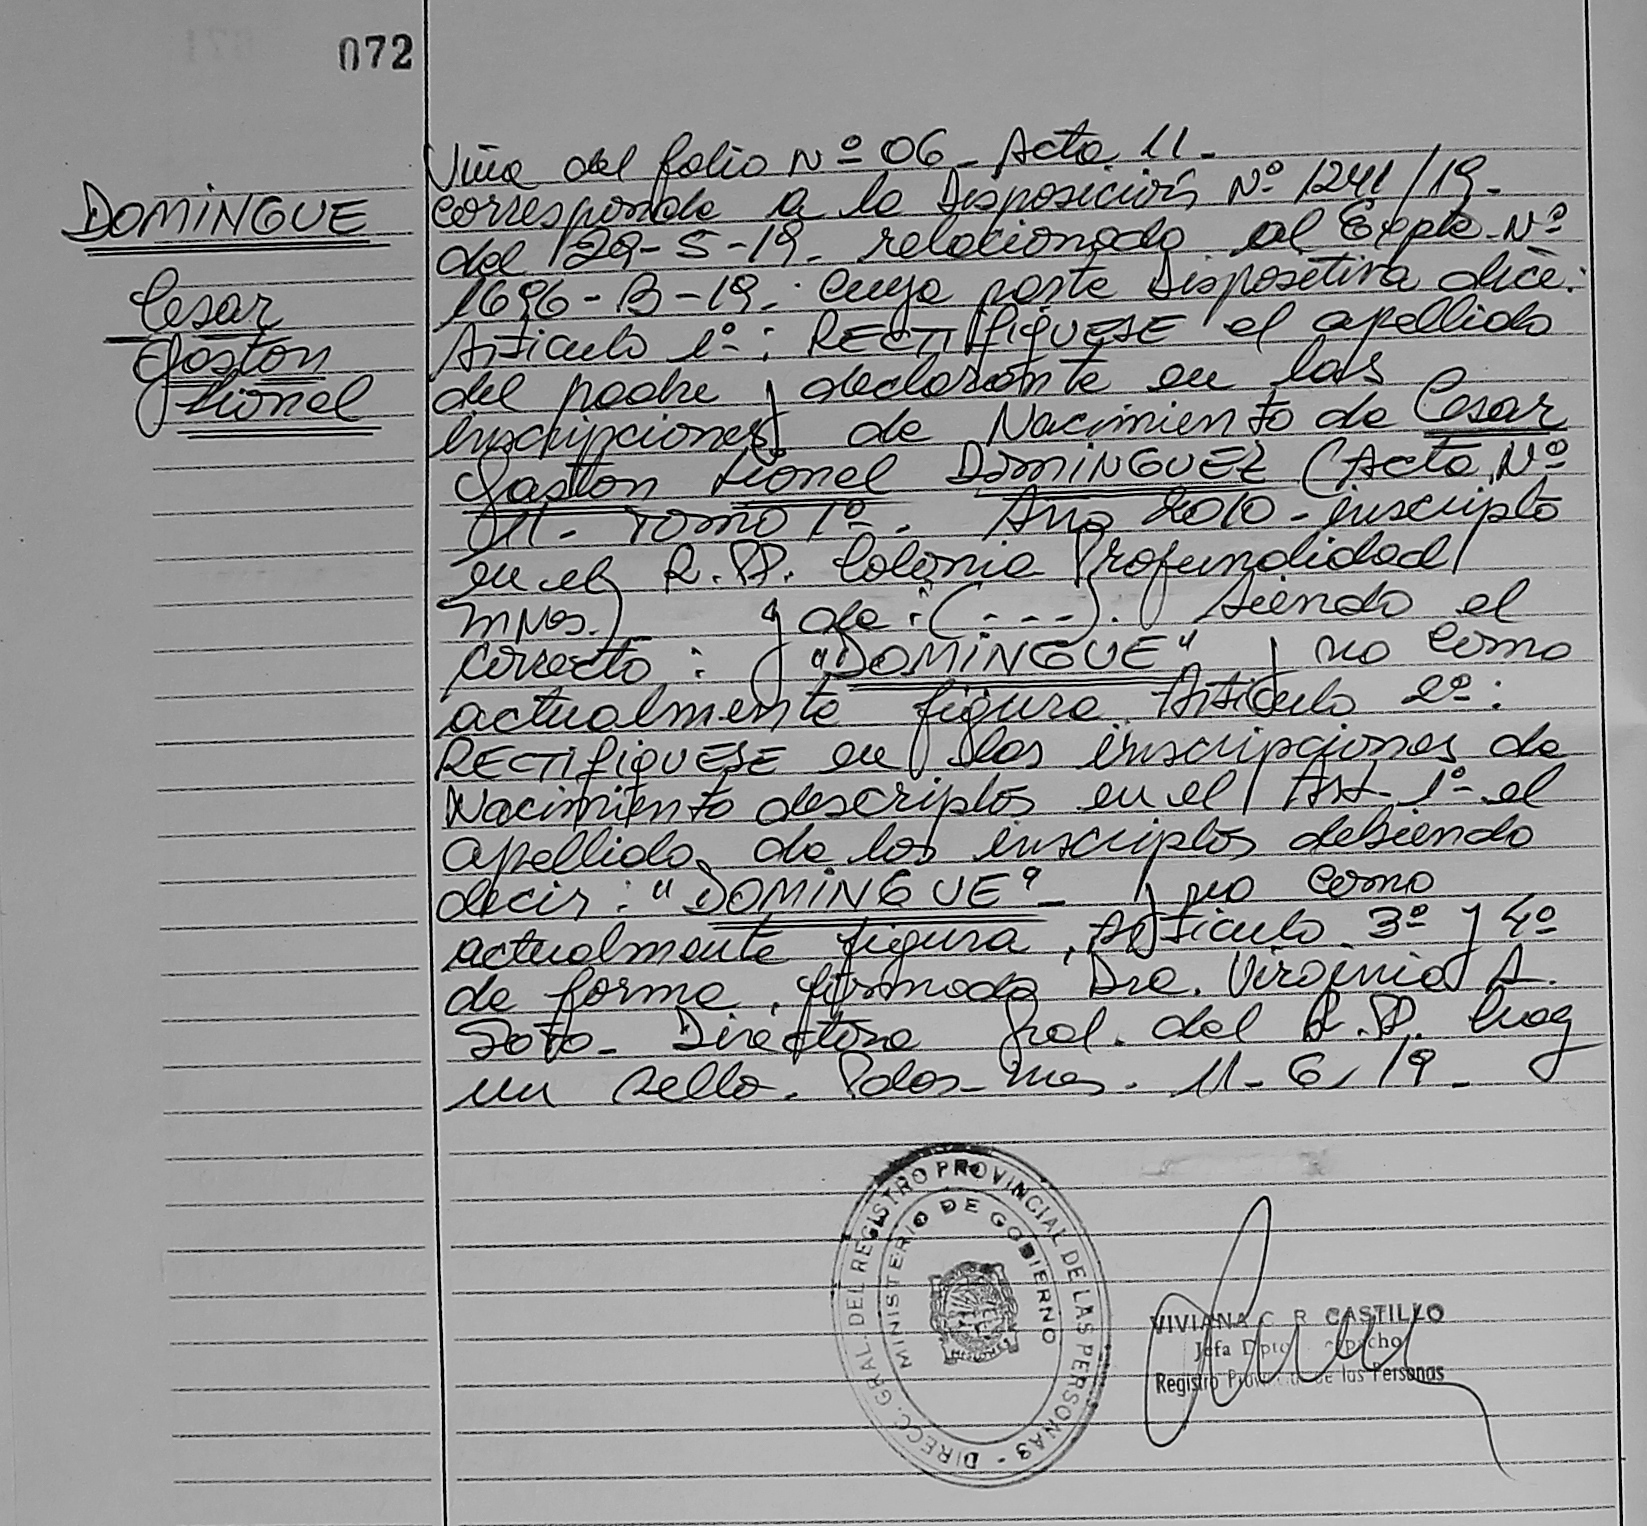 072
DOMINGUE
Cesar
Gaston
Lionel
Viñe del folio Nº 06 - Acta 11 -
corresponde a la Disposición Nº 1241/19 -
del 29-5-19 - relacionado al Expte. Nº
1696 - B - 19. cuya parte Dispositiva dice:
Articulo 1º: RECTIFIQUESE el apellido
del padre y declarante en las
inscripciones de Nacimiento de Cesar
Gaston Lionel DOMINGUEZ (Acta Nº
011 - Tomo 1º. Año 2010 - inscripto
en el R.P. Colonia Profundidad
mnes.) y de: (---). Siendo el
correcto: "DOMINGUE" y no como
actualmente figura. Articulo 2º:
RECTIFIQUESE en las inscripciones de
Nacimiento descriptos en el Art. 1º el
apellido de los inscriptos debiendo
decir: "DOMINGUE" - y no como
actualmente figura. Articulo 3º y 4º
de forma. firmada Dra. Virginia A.
Soto - Directora Gral. del R.P. hay
un sello. Pdas - Mnes. 11-6-19 -
DIRECC. GRAL. DEL REGISTRO PROVINCIAL DE LAS PERSONAS -
MINISTERIO DE GOBIERNO
MISIONES
VIVIANA C R CASTILLO
Jefa Dpto
Registro Provincial de las Personas